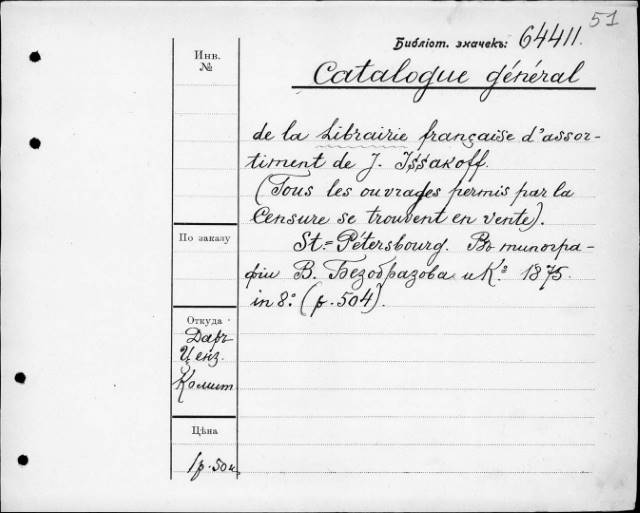 51
Библіот. значекъ: 64411.
Инв.
№
Catalogue général
de la Librairie française d'assor-
timent de J. Issakoff.
(Tous les ouvrages permis par la
Censure se trouvent en vente).
По заказу
St.=Pétersbourg. Въ типогра-
фіи В. Безобразова и К.° 1875.
in 8:° (p. 504).
Откуда
Даръ
Ценз.
Комит
Цѣна
1 р. 50 к